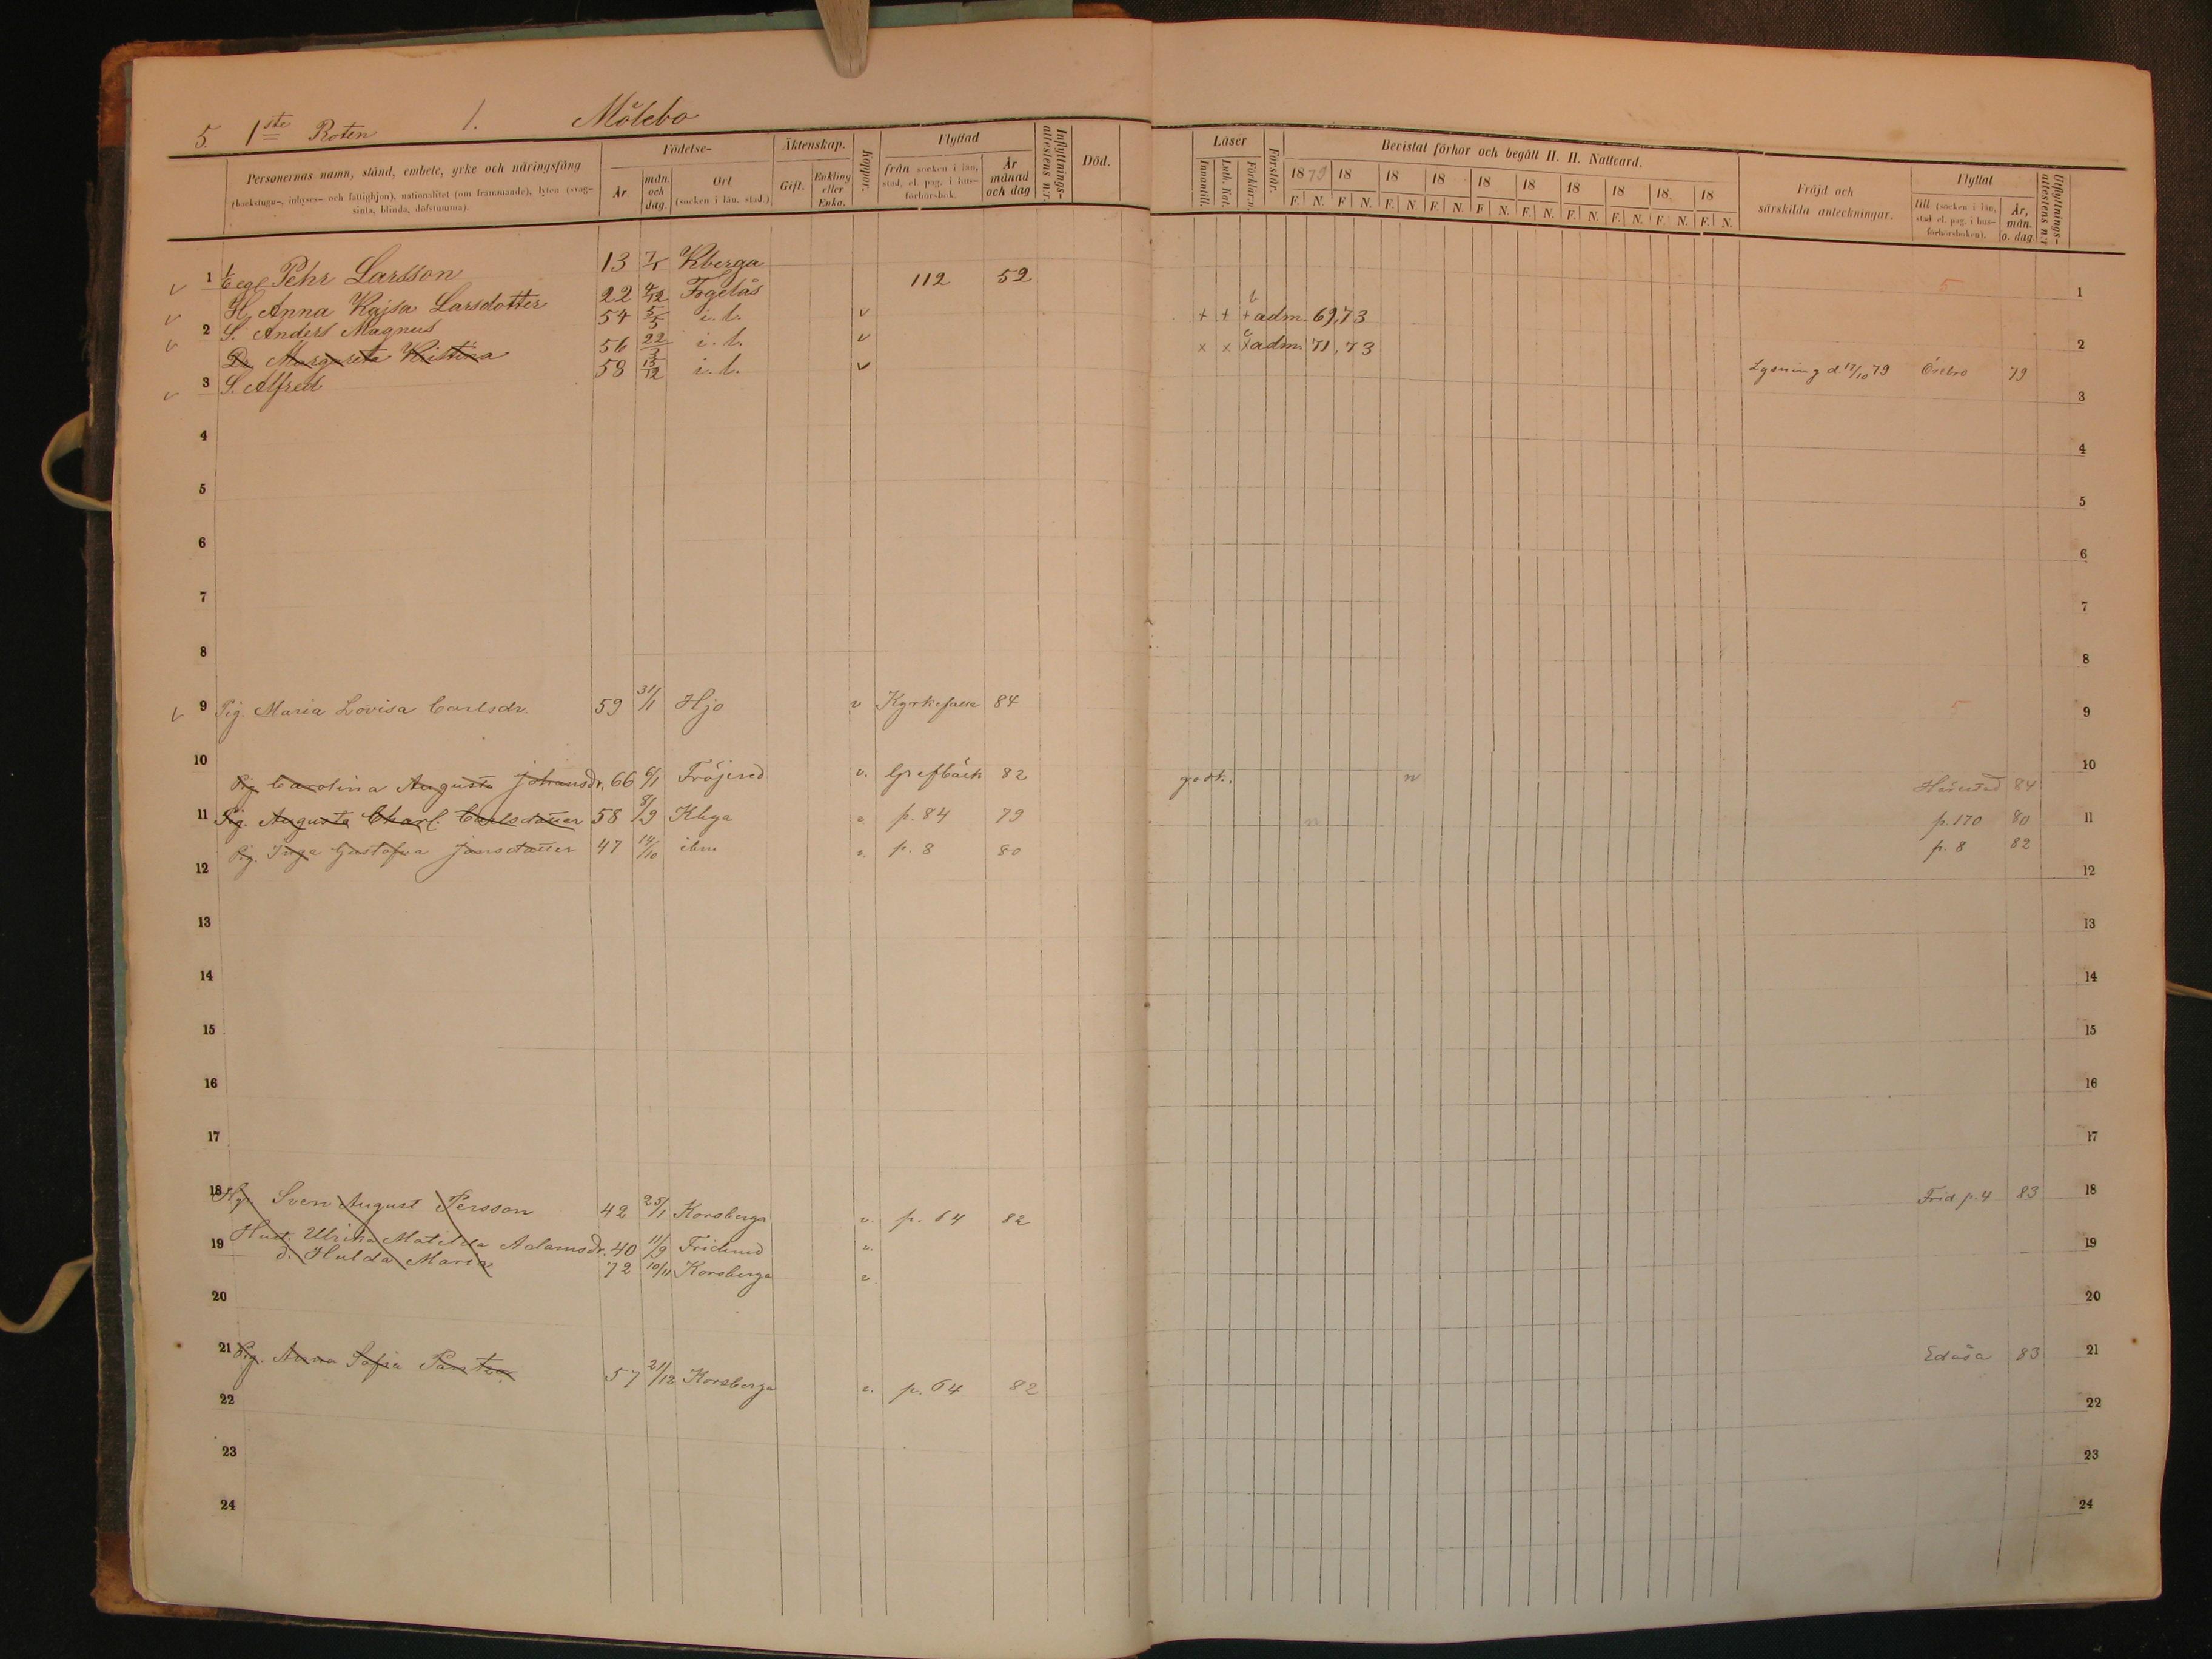 5. 1ste Roten 1. Mölebo
Personernas namn, stånd, embete, yrke och näringsfång
(backstugu-, inhyses- och fattighjon), nationalitet (om främmande), lyten (svag-
sinta, blinda, döfstumma).
Födelse-
År
mån. och dag.
Ort
(socken i län, stad.)
Äktenskap.
Gift.
Enkling eller Enka.
Koppor.
Flyttad
från socken i län, stad, el. pag. i hus-förhörsbok.
År månad och dag
Inflyttnings-attestens n:r
Död.
Läser
Innantill.
Luth. Kat.
Förklar:n.
Förstår.
Bevistat förhör och begått H. H. Nattvard.
1879 18 18 18 18 18 18 18 18 18
F. N. F. N. F. N. F. N. F. N. F. N. F. N. F. N. F. N. F. N.
Fräjd och
särskilda anteckningar.
Flyttat
till (socken i län, stad el. pag. i hus-förhörsboken).
År, mån. o. dag.
Utflyttnings-attestens n:r
1 1/6 eg. Pehr Larsson 13 7/1 Kberga 112 52 5 1
H. Anna Kajsa Larsdotter 22 4/12 Fogelås
2 S. Anders Magnus 54 5/5 i. l. v + + + adm. 69, 73 2
Dr. Margareta Kristina 56 22/3 i. l. v x x x adm. 71, 73 Lysning d. 12/10 79 Örebro 79
3 S. Alfred 58 13/12 i. l. v 3
4 4
5 5
6 6
7 7
8 8
9 Pig. Maria Lovisa Carlsdr. 59 31/1 Hjo v Kyrkefalla 84 5 9
10 Pig. Carolina Augusta Johansdr. 66 6/1 Fröjered v. Grefbäck 82 godk. n 84 10
11 Pig. Augusta Charl. Carlsdotter 58 8/9 Kbga v. p. 84 79 n p. 170 80 11
Pig. Inga Gustafva Jansdotter 47 14/10 ibm v. p. 8 80 p. 8 82
12 12
13 13
14 14
15 15
16 16
17 17
18 Sven August Persson 42 25/1 Korsberga v. p. 64 82 Frid p. 4 83 18
Hust. Ulrika Matilda Adamsdr. 40 11/9 Fridened v.
19 d. Hulda Maria 72 10/11 Korsberga v 19
20 20
21 Pig. Anna Sofia Pantzar 57 21/12 Korsberga v. p. 64 82 Edåsa 83 21
22 22
23 23
24 24